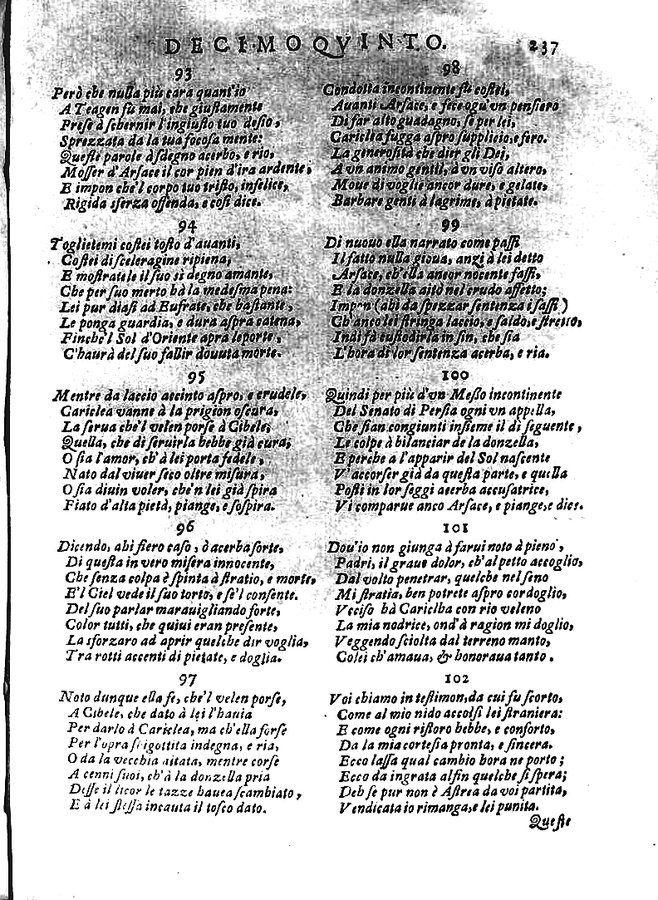 DECIMOQVINTO. 237
93
Però che nulla più cara quant'io
A Teagen fù mai, che giustamente
Prese à schernir l'ingiusto tuo desio,
Sprezzata da la tua focosa mente:
Queste parole à sdegno acerbo, e rio,
Mosser d'Arsace il cor pien d'ira ardente;
E impon che'l corpo tuo tristo, infelice,
Rigida sferza offenda, e così dice.
94
Toglietemi costei tosto d'auanti,
Costei di sceleragine ripiena,
E mostratele il suo sì degno amante,
Che per suo merto hà la medesma pena:
Lei pur diasi ad Eufrate, che bastante,
Le ponga guardia, e dura aspra catena,
Finche'l Sol d'Oriente apra le porte,
C'haurà del suo fallir douuta morte.
95
Mentre da laccio accinto aspro, e crudele,
Cariclea vanne à la prigion oscura,
La serua che'l velen porse à Cibele;
Quella, che di seruirla hebbe già cura;
O sia l'amor, ch'à lei porta fedele,
Nato dal viuer seco oltre misura,
O sia diuin voler, che'n lei già spira
Fiato d'alta pietà, piange, e sospira.
96
Dicendo, ahi fiero caso, ò acerba sorte,
Di questa in vero misera innocente,
Che senza colpa è spinta à stratio, e morte,
E'l Ciel vede il suo torto, e s'è'l consente.
Del suo parlar marauigliando forte,
Color tutti, che quiui eran presente,
La sforzaro ad aprir quelche dir voglia,
Tra rotti accenti di pietate, e doglia.
97
Noto dunque ella fe, che'l velen porse,
A Cibele, che dato à lei l'hauia
Per darlo à Cariclea, ma ch'ella forse
Per l'opra sbigottita indegna, e ria,
O da la vecchia aitata, mentre corse
A cenni suoi, ch'à la donzella pria
Desse il licor le tazze hauea scambiato,
E à lei stessa incauta il tosco dato.
98
Condotta incontinente fù costei,
Auanti Arsace, e fece ogn'vn pensiero
Di far alto guadagno, se per lei,
Cariclea fugga aspro supplicio, e fero.
La generosità che dier gli Dei,
A vn animo gentil, à vn viso altero,
Moue di voglie ancor dure, e gelate,
Barbare genti à lagrime, à pietate.
99
Di nuouo ella narrato come passi
Il fatto nulla gioua, anzi à lei detto
Arsace, ch'ella ancor nocente fassi,
E la donzella aitò nel crudo affetto;
Impon (ahi da spezzar sentenza i sassi)
Ch'anco lei stringa laccio, e saldo, e stretto,
Indi fà custodirla in fin, che sia
L'hora di lor sentenza acerba, e ria.
100
Quindi per più d'vn Messo incontinente
Del Senato di Persia ogni vn appella,
Che sian congiunti insieme il dì seguente,
Le colpe à bilanciar de la donzella,
E perche à l'apparir del Sol nascente
V'accorser già da questa parte, e quella
Posti in lor seggi acerba accusatrice,
Vi comparue anco Arsace, e piange, e dice.
101
Dou'io non giunga à farui noto à pieno,
Padri, il graue dolor, ch'al petto accoglio,
Dal volto penetrar, quelche nel seno
Mi stratia, ben potrete aspro cordoglio,
Vcciso hà Cariclea con rio veleno
La mia nodrice, ond'à ragion mi doglio,
Veggendo sciolta dal terreno manto,
Colei ch'amaua, & honoraua tanto.
102
Voi chiamo in testimon, da cui fu scorto,
Come al mio nido accolsi lei straniera:
E come ogni ristoro hebbe, e conforto,
Da la mia cortesia pronta, e sincera.
Ecco lassa qual cambio hora ne porto;
Ecco da ingrata alfin quelche si spera;
Deh se pur non è Astrea da voi partita,
Vendicata io rimanga, e lei punita.
Queste